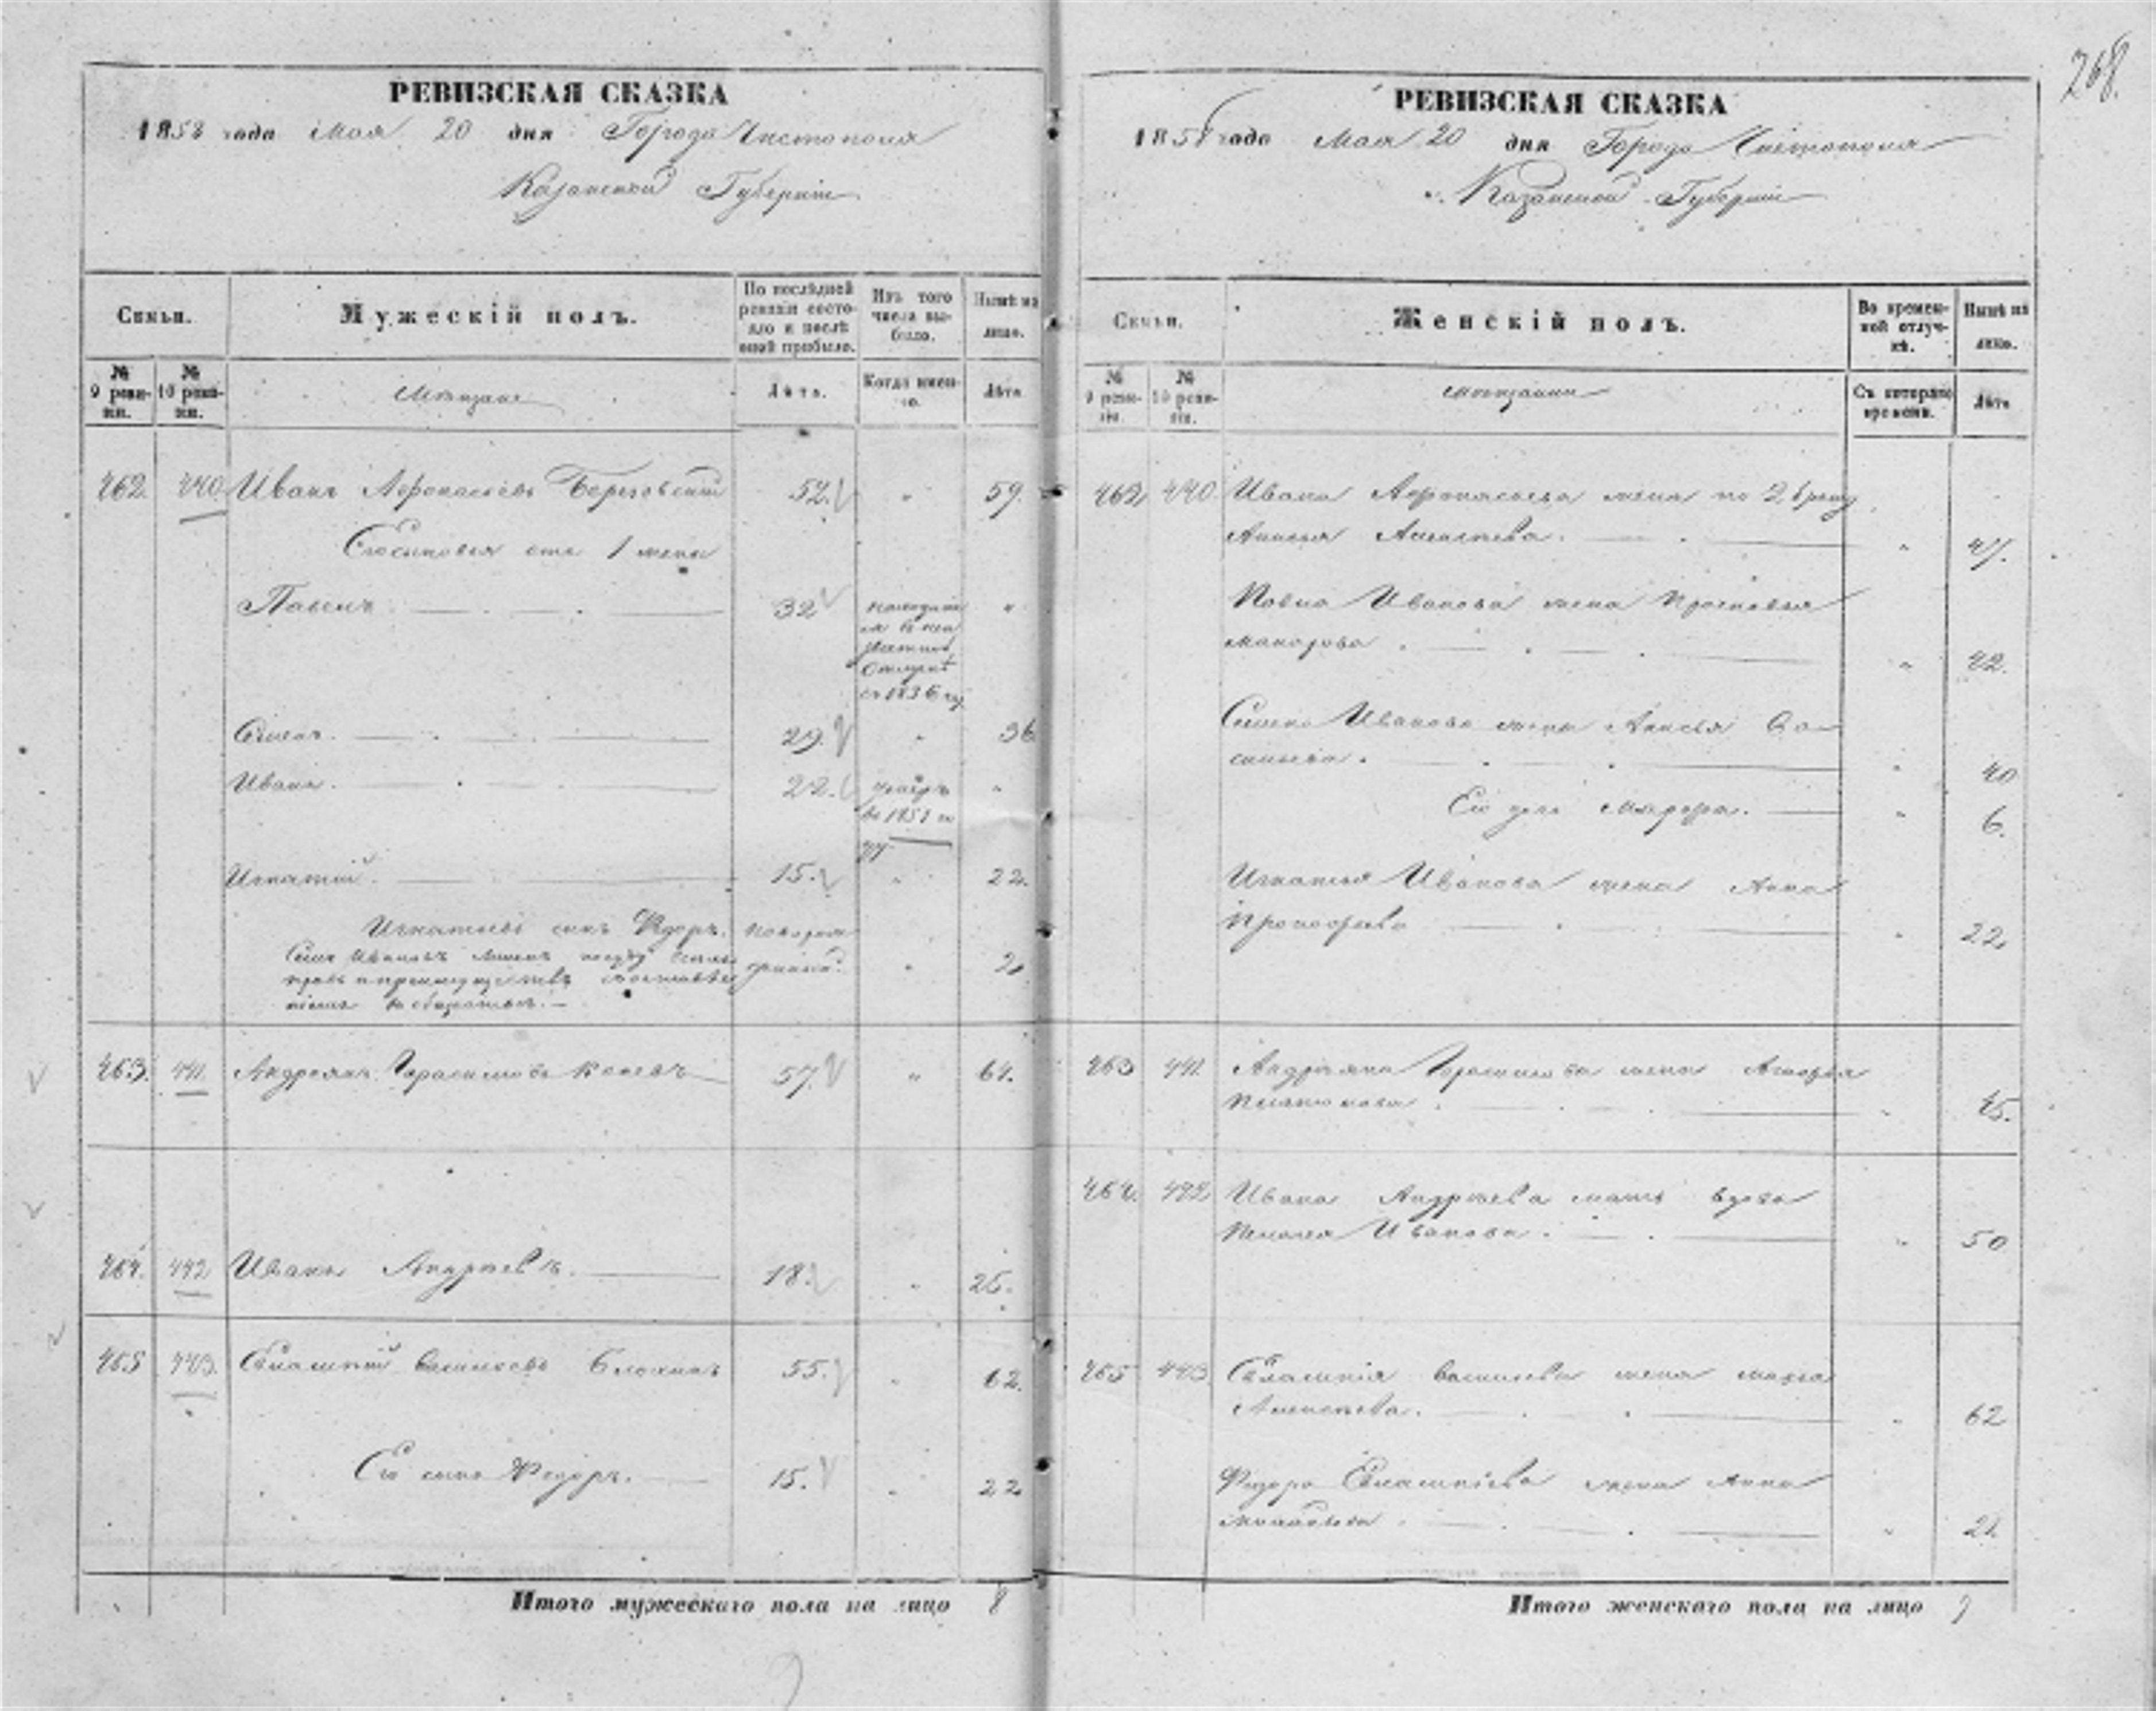 268.
РЕВИЗСКАЯ СКАЗКА
1858 года Мая 20 дня Города Чистополя
Казанской Губернiи
Семьи.
Мужескiй полъ.
По послѣдней ревизiи состояло и послѣ оной прибыло.
Изъ того числа выбыло.
Нынѣ на лицо.
№ 9 ревизiи.
№ 10 ревизiи.
Мѣщане
Лѣта.
Когда именно.
Лѣта
462. 440 Иванъ Афонасьевъ Береговскiй 52. " 59.
Сыновья отъ 1 жены
Павелъ 32 "
отлучкѣ
съ 1836 го
Семенъ. 29. " 36
Иванъ. 22. умеръ "
въ 1851 го
ду
Игнатiй. 15. " 22.
Игнатьевъ сынъ Федоръ. " 2
463. 441. Андреянъ Герасимовъ 57. " 64.
464. 442 Иванъ Андреевъ. 18. " 25.
465 443. Евлампiй Васильевъ Блохинъ 55. " 62.
Его сынъ Федоръ. 15. " 22
Итого мужескаго пола на лицо 8
РЕВИЗСКАЯ СКАЗКА
1858 года Мая 20 дня Города Чистополя
Казанской Губернiи
Семьи.
Женскiй полъ.
Во временной отлучкѣ.
Нынѣ на лицо.
№ 9 ревизiи.
№ 10 ревизiи.
мѣщанки
Съ котораго времени.
Лѣта
462 440. Ивана Афонасьева жена по 2 браку
Алексѣева. " 47.
Павла Иванова жена Прасковья
Макарова. " 42.
Семена Иванова жена Анисья Ва-
сильева. " 40
Его дочь Марфа. " 6.
Игнатья Иванова жена Анна
Прокофьева " 22
463 441 Андреяна Герасимова жена
" 45.
464. 442 Ивана Андреева мать вдова
Иванова. " 50
465 443. Евлампiя Васильева жена
Алексѣева. " 62
Федора Евлампiева жена Анна
" 21
Итого женскаго пола на лицо 9